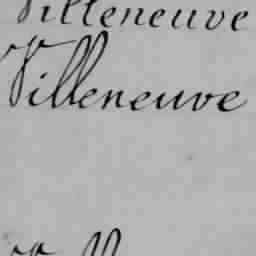 Villeneuve
Villeneuve